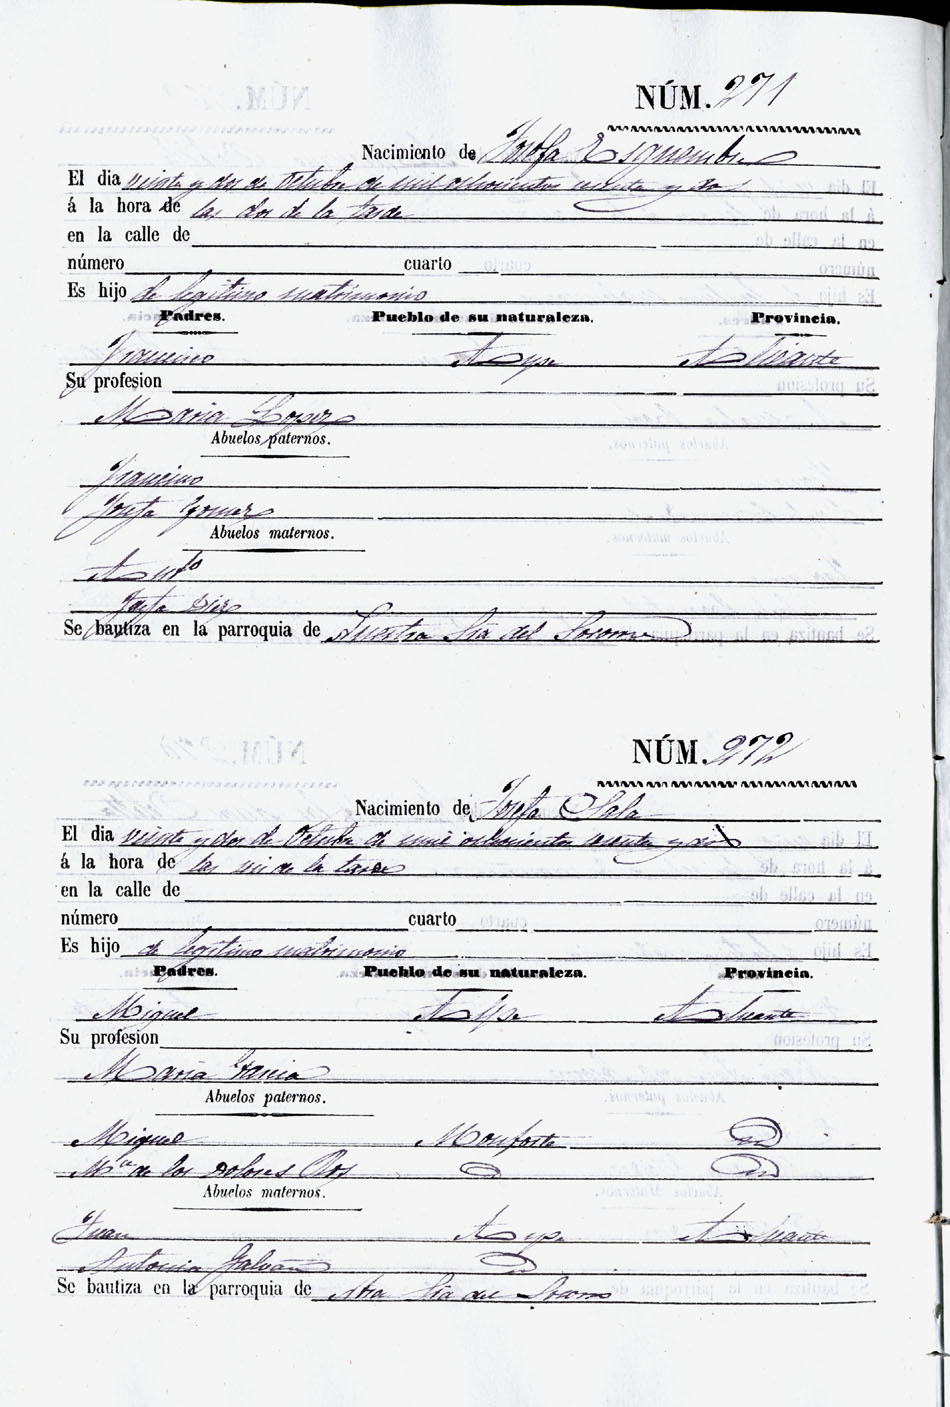 NÚM. 271
Nacimiento de Josefa Esquembre
El dia veinte y dos de Octubre de mil ochocientos y dos
á la hora de las dos de la tarde
en la calle de
número cuarto
Es hijo de legitimo matrimonio
Padres. Pueblo de su naturaleza. Provincia.
Francisco Aspe Alicante
Su profesion
Maria Lopez
Abuelos paternos.
Francisco
Josefa Gomez
Abuelos maternos.
Antº
Josefa Diez
Se bautiza en la parroquia de Nuestra Sra del Socorro
NÚM. 272
Nacimiento de Josefa Sala
El dia veinte y dos de Octubre de mil ochocientos y dos
á la hora de las de la tarde
en la calle de
número cuarto
Es hijo de legitimo matrimonio
Padres. Pueblo de su naturaleza. Provincia.
Miguel Aspe Alicante
Su profesion
Maria Garcia
Abuelos paternos.
Miguel Monforte id
Mª de los Dolores id id
Abuelos maternos.
Juan Aspe Alicante
Antonia Galvañ id
Se bautiza en la parroquia de Ntra Sra del Socorro